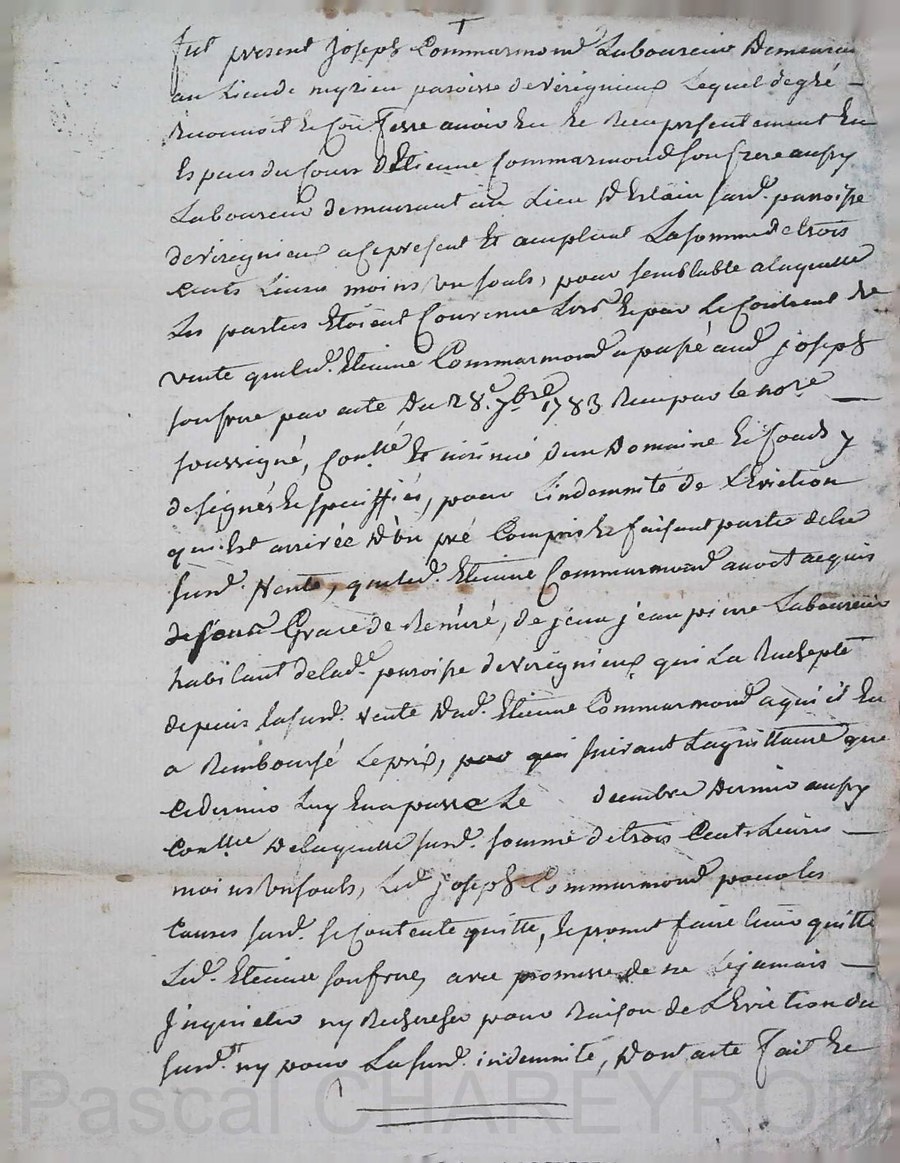 +
fut present Joseph Commarmond Laboureur Demeurant
au Lieu de myrieu paroisse de virignieux Lequel de gré
reconnoit et Confesse avoir Eu et Receu presentement En
Espece du Cours D'Etienne Commarmond son frere aussy
Laboureur demeurant au Lieu surd. paroisse
de virignieux a ce present et acceptant La somme de trois
Cents Livres moins un souls, pour semblable a laquelle
Les parties Etoient Convenue Lors et par Le Contract de
vente que led. Etienne Commarmond a passé aud. joseph
son frere par acte Du 28.e 7bre 1783 Receu par le nore
soussigné, Conllé et insinué d'un Domaine et fonds y
designés et speciffiés, pour L'indemnité de L'Eviction
qui Est arrivée D'un pré Compris et faisant partie de la
surd. Vente, que led. Etienne Commarmond avoit acquis
de sous Grace de Réméré, de jean jean pierre Laboureur
habitant de lad.e paroisse de virignieux qui La Rachepté
depuis la surd. Vente Dud. Etienne Commarmond a qui il En
a Remboursé Le prix, par qui suivant La quittance que
Ce dernier Luy En a passé Le decembre Dernier aussy
Conllée De laquelle surd. somme de trois Cents Livres
moins un souls, Led. joseph Commarmond pour les
Causes surd. se Contente quitte, et promet faire tenir quitte
Led. Etienne son frere, avec promesse de ne Le jamais
jnquieter ny Rechercher pour Raison de L'Eviction du
surd. ny pour La surd. indemnité, Dont acte fait et
Pascal CHAREYRON